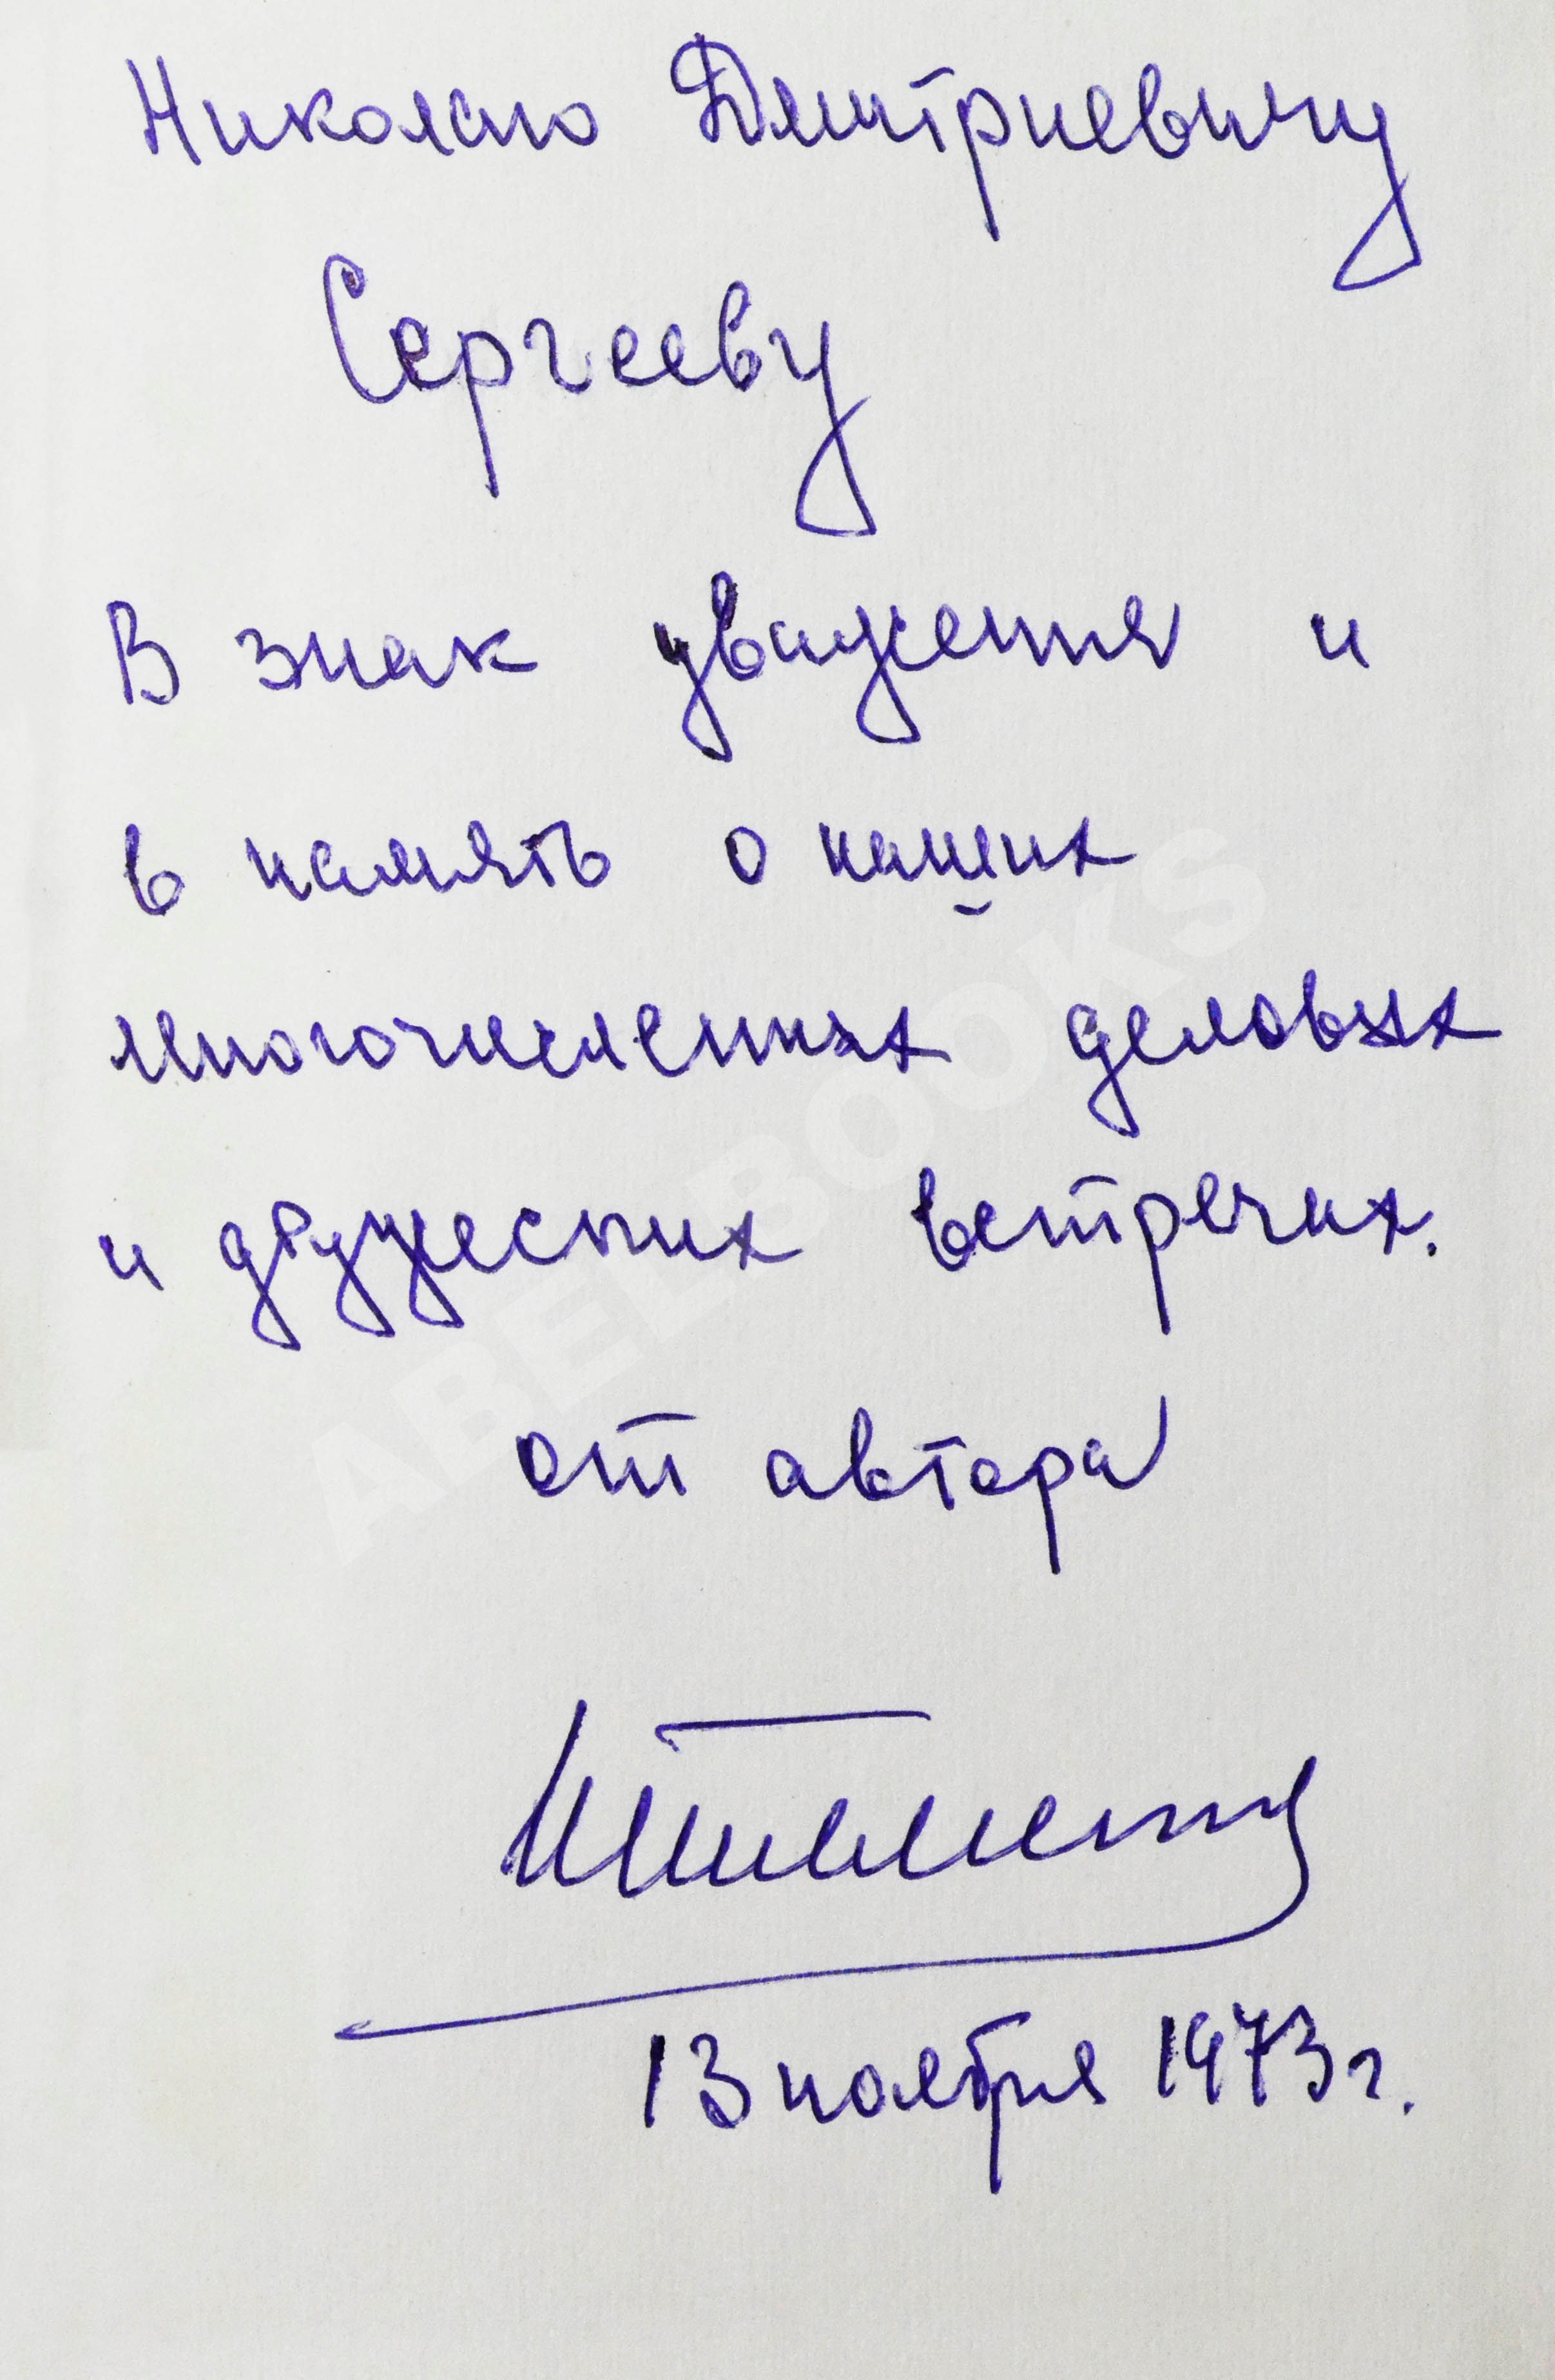 Николаю Дмитриевичу
Сергееву
В знак уважения и
в память о наших
многочисленных деловых
и дружеских встречах.
от автора
13 ноября 1973 г.
ABELBOOKS